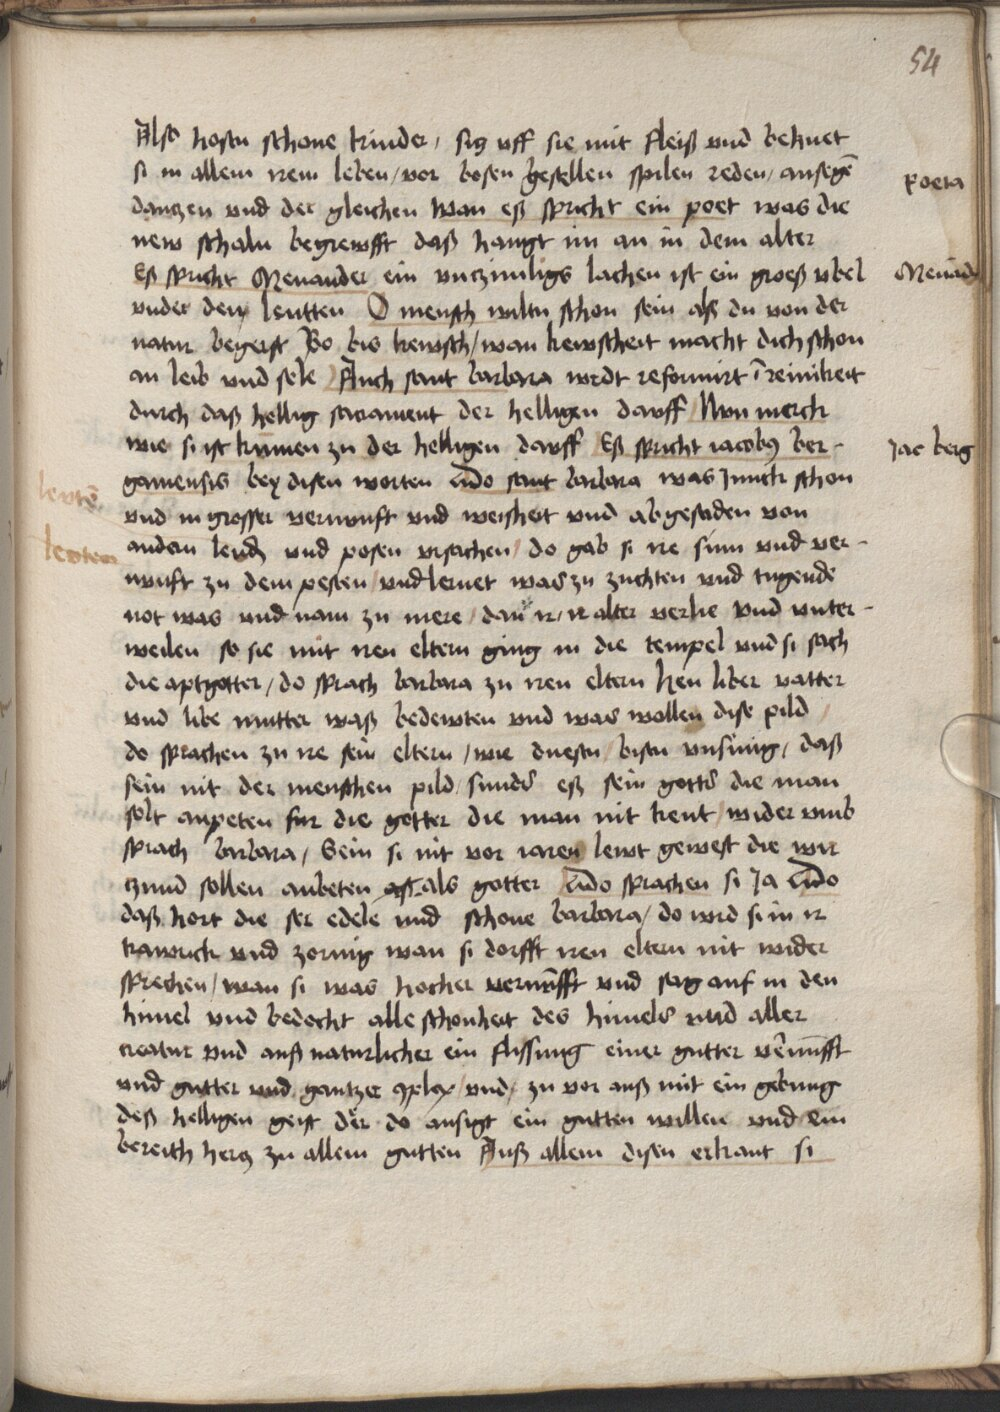 54
Also hosen schone kinder / sig uff sie mit fleiß vnd behuet
si in allem irem leben / vor bosen gesellen spilen reden / ansegē
dantzen vnd der gleichen wan eß spricht ein poet was die
poeta
new schaln begrewfft daß hangt im an in dem alter
Eß spricht Menander ein vnczimligs lachen ist ein groeß vbel
Menād
vnder den leutten O mensch wiltu schon sein als du von der
natur begerst So bis kewsch / wan kewscheit macht dich schon
an leib vnd sele Auch sant barbara wrdt reformirt ī reinikeit
durch daß hellig sacrament der helligen dauff Nvn merck
wie si ist kumen zu der helligen dauff Eß spricht iacobus ber-
Jac berg
gamensis bey disen worten vnd do sant barbara was Junck schon
lewtē
vnd in grosser vernunft vnd weisheit vnd abgesaden von
andern leudz vnd posen vrsachen / do gab si ire sinn vnd ver-
lewten
nunft zu dem pesten / vnd lernet was zu zuchten vnd tugende
not was vnd nam zu mere / dan ir / ir alter verlie vnd vnter-
weilen so sie mit iren eltern ging in die tempel vnd si sach
die aptgotter / do sprach barbara zu iren eltern hen liber vatter
vnd libe mutter waß bedewten vnd was wollen dise pild
do sprachen zu ire sein eltern / wie duestu / bistu vnsinig / daß
sein nit der menschen pild sunder eß sein gotter die man
solt anpeten fur die gotter die man nit kent / wider vmb
sprach barbara / Sein si nit vor iaren lewt gewest die wir
tzund sollen anbeten als gotter vnd do sprachen si Ja vnd do
daß hort die ser edele vnd schone barbara / do wrd si in ir
trawrich vnd zornig wan si dorfft iren eltern nit wider
sprechen / wan si was hocher vernūfft vnd sag auf in den
himel vnd bedocht alle schonheit des himels vnd aller
creatur vnd auß naturlicher ein flissung einer gutter vernunfft
vnd gutter vnd gantzer 9plex / vnd / zu vor auß mit ein gebung
deß helligen geist der do ansigt ein gutten willen vnd ein
bereith hercz zu allem gutten Auß allem disen erkant si